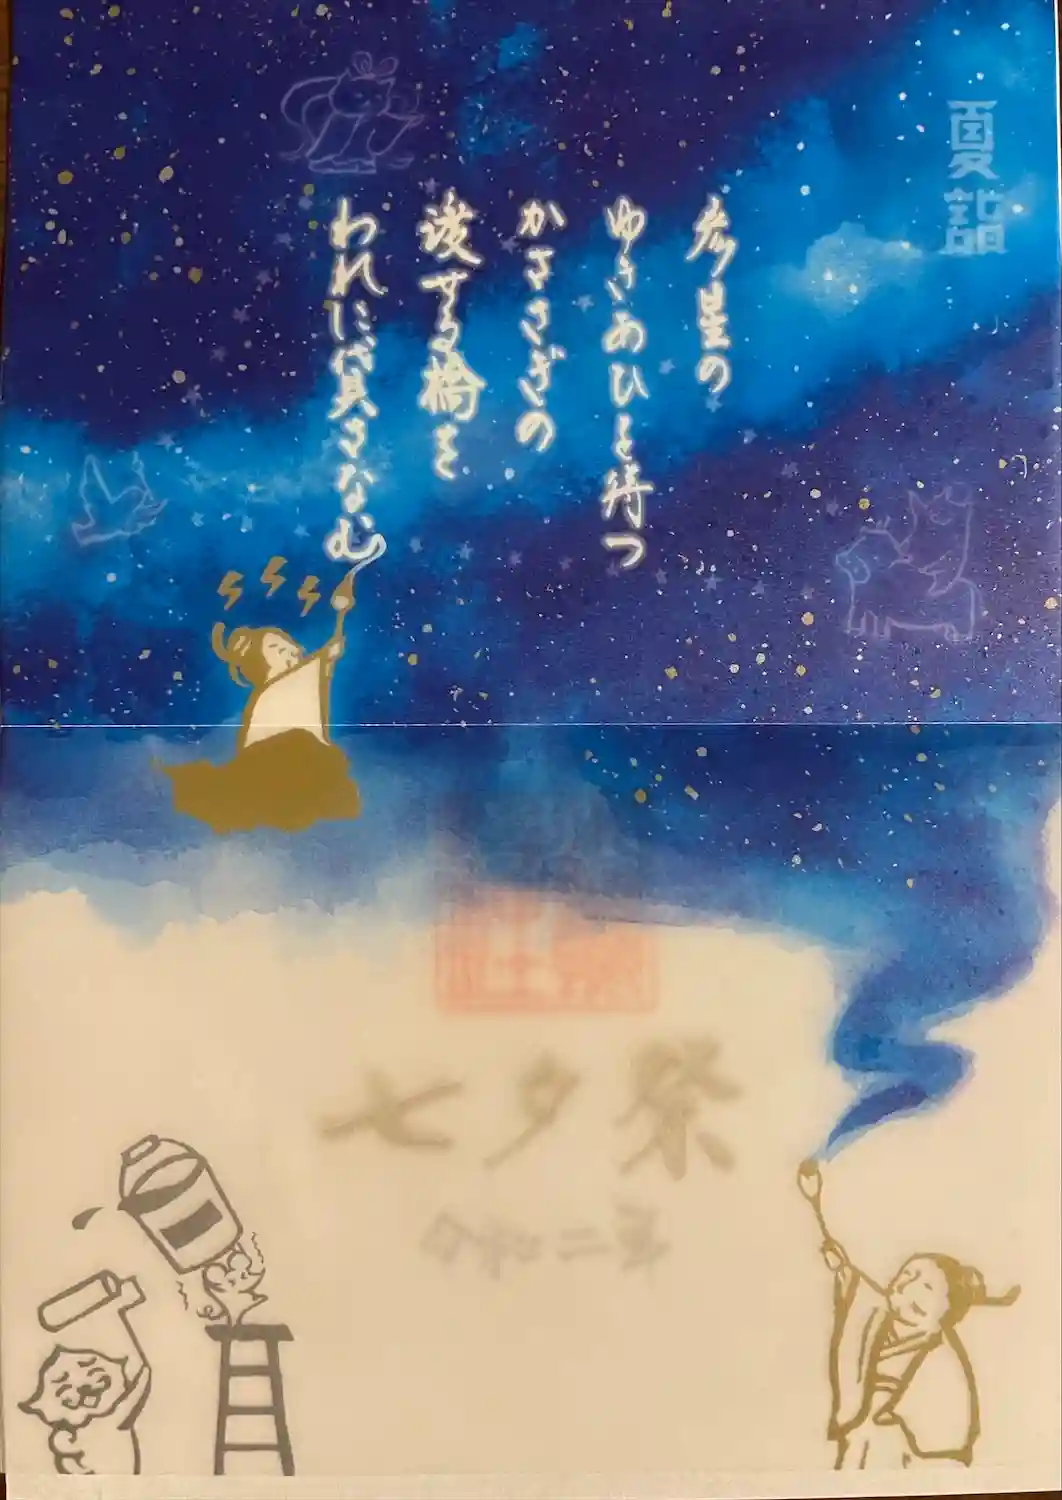 夏詣
彦星の
ゆきあひを待つ
かささぎの
渡せる橋を
われに貸さなむ
七夕祭